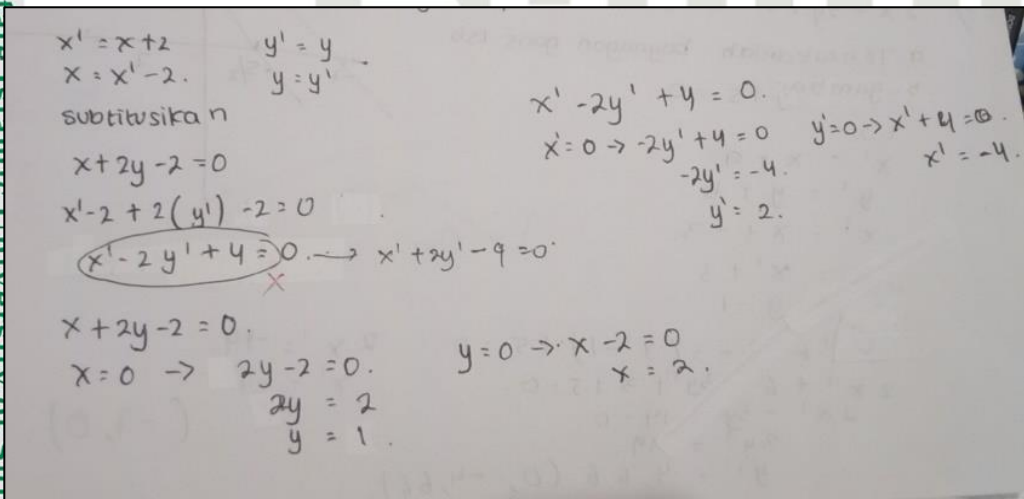 x' = x+2 y' = y
x = x'-2. y = y'
subtitusikan
x + 2y - 2 = 0
x'-2 + 2(y') - 2 = 0
x'- 2y' + 4 = 0. → x' + 2y' - 9 = 0
x
x + 2y - 2 = 0.
x = 0 → 2y - 2 = 0.
2y = 2
y = 1.
x' - 2y' + 4 = 0.
x' = 0 → -2y' + 4 = 0
-2y' = -4.
y' = 2.
y' = 0 → x' + 4 = 0.
x' = -4.
y = 0 → x - 2 = 0
x = 2.